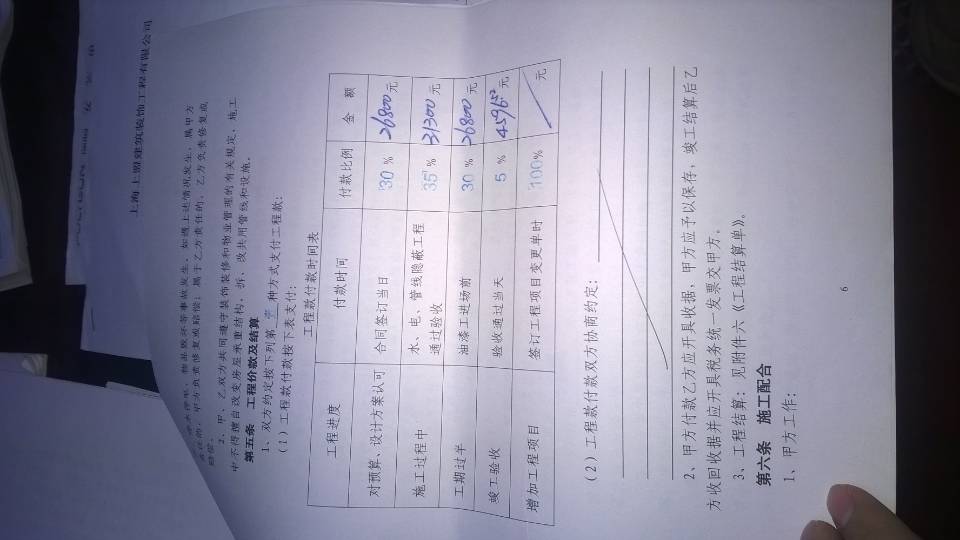 上海上盟建筑装饰工程有限公司
漏水停电、物品毁坏等事故发生。如遇上述情况发生，属甲方
责任的，甲方负责修复或赔偿；属于乙方责任的，乙方负责修复或
赔偿。
2、甲、乙双方共同遵守装饰装修和物业管理的有关规定，施工
中不得擅自改变房屋承重结构，拆、改共用管线和设施。
第五条 工程价款及结算
1、双方约定按下列第 种方式支付工程款：
（1）工程款付款按下表支付：
工程款付款时间表
工程进度 付款时间 付款比例 金 额
对预算、设计方案认可 合同签订当日 30 % 26800 元
施工过程中 水、电、管线隐蔽工程通过验收 35 % 31300 元
工期过半 油漆工进场前 30 % 26800 元
竣工验收 验收通过当天 5 % 元
增加工程项目 签订工程项目变更单时 100% 元
（2）工程款付款双方协商约定：
2、甲方付款乙方应开具收据，甲方应予以保存，竣工结算后乙
方收回收据并应开具税务统一发票交甲方。
3、工程结算：见附件六《工程结算单》。
第六条 施工配合
1、甲方工作：
6